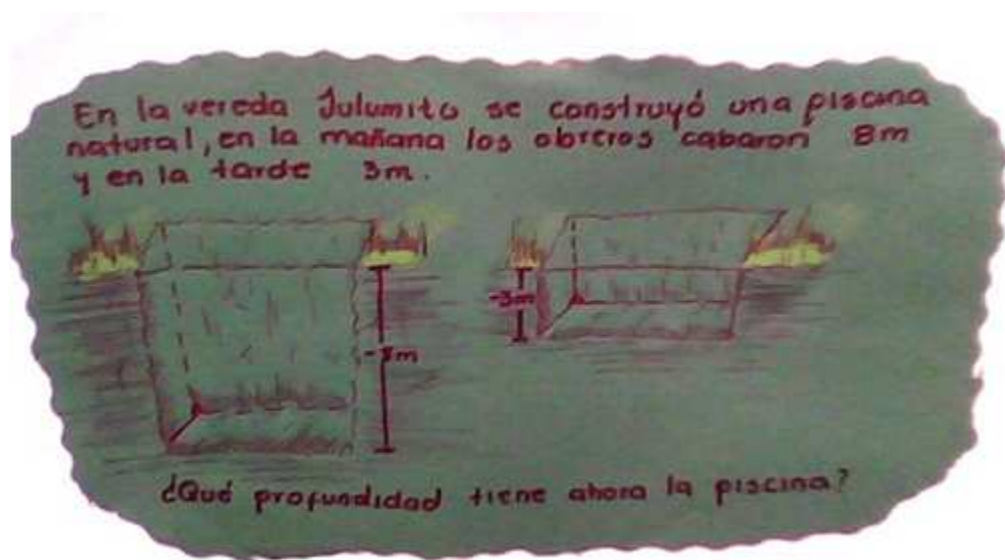 En la vereda Julumito se construyó una piscina
natural, en la mañana los obreros cabaron 8m
y en la tarde 3m.
-3m
-8m
¿Qué profundidad tiene ahora la piscina?